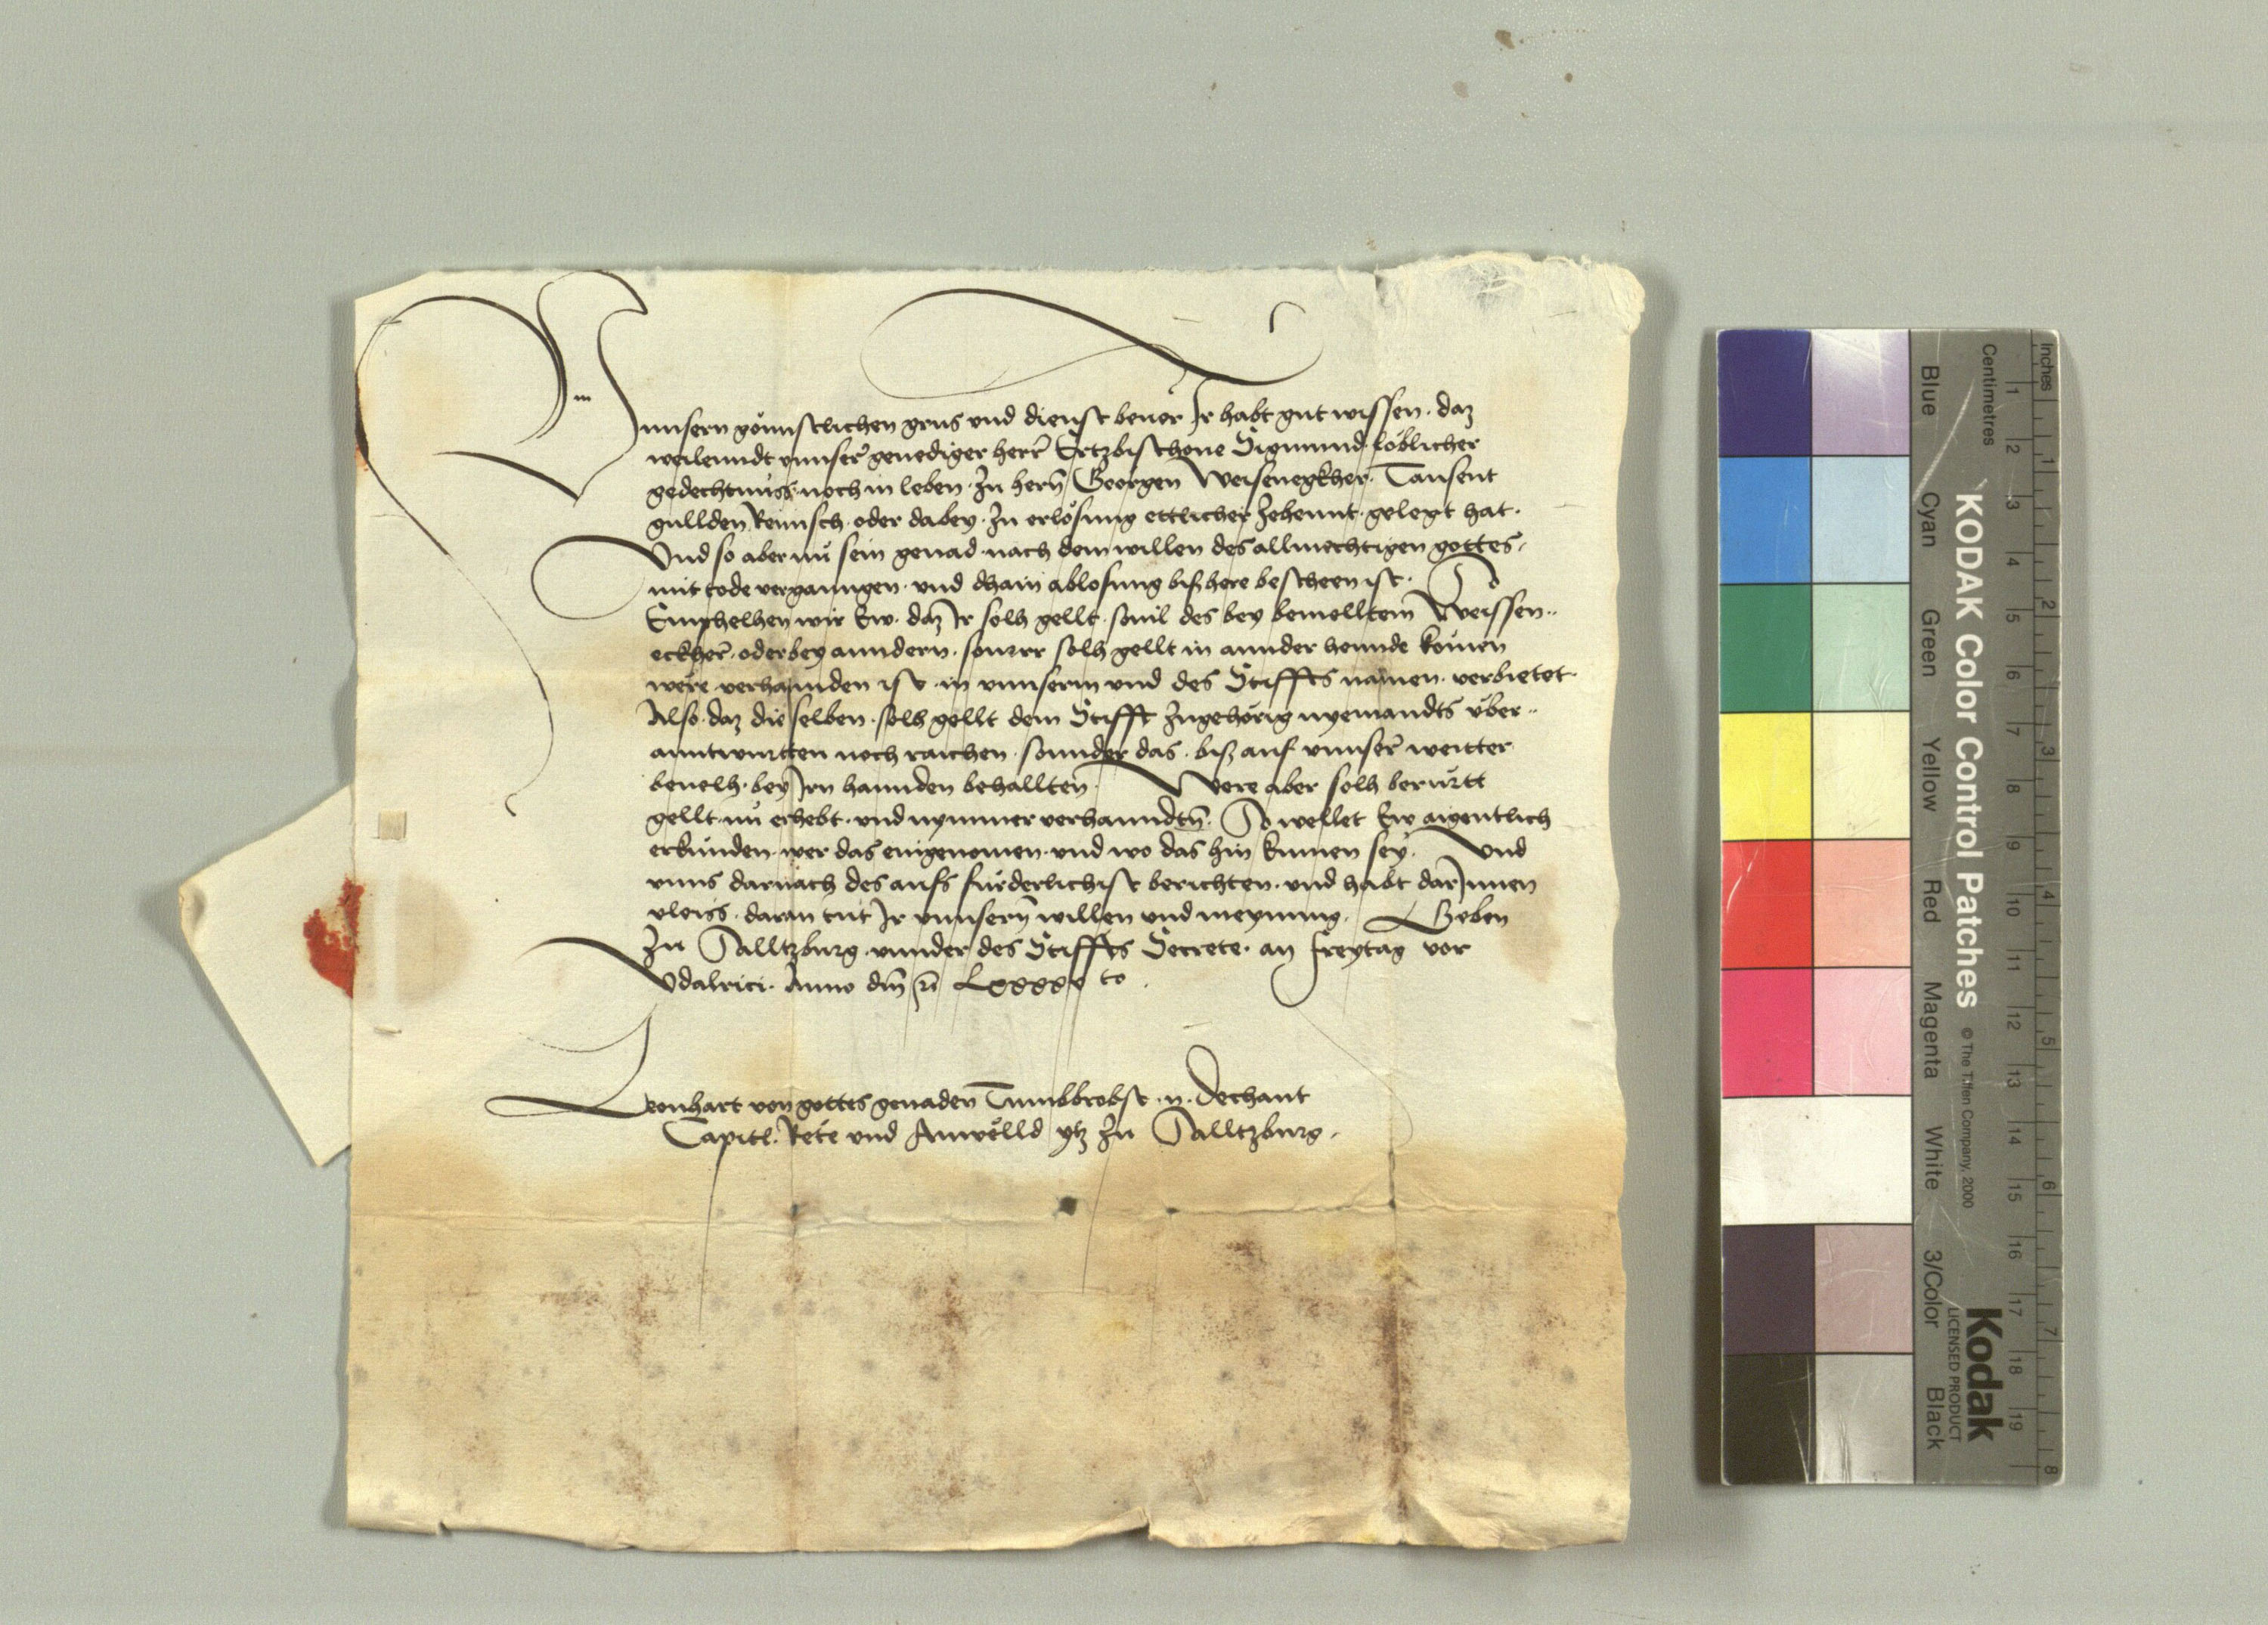 Vnnsern gönnstlichen grus vnd dienst beuor Ir habt gut wissen. daz
weilenndt vnnser genediger herr Ertzbischoue Sigmund löblicher
gedechtnuss. noch in leben. zu hern Georgen Weisenegkher. Tausent
gullden Reinisch. oder dabey. zu erlösung ettlicher zehennt. gelegt hat.
Vnd so aber nu sein genad. nach dem willen des allmechtigen gottes.
mit tode verganngen. vnd dhain ablosung bisshere bescheen ist. So
Emphelhen wir Ew. daz Ir solh gellt. souil des bey bemelltem Weissen..
eckher. oder bey anndern. solh gellt in annder hennde komen
were. verhannden ist. in vnnserm vnd des Stiffts namen. verbietet.
Also. daz die selben. solh gellt dem Stifft zugehörig nyemandts über..
anntwurtten noch raichen. sonnder das. biss auf vnnser weitter
beuelh. bey Irn hannden behallten. Were aber solh berürtt
gellt. nu erhebt. vnd nymmer verhanndtn. So wellet Ew aigentlich
erkunden. wer das eingenomen. vnd wo das hin kumen sey. Vnd
vnns darnach des aufs fürderlichist berichten. vnd habt darInnen
vleiss. daran tut Ir vnnsern willen vnd meynung. Geben
zu Salltzburg. vnnder des Stiffts Secrete. an freytag vor
Vdalrici. Anno dm̄ LXXXXV to.
Leonhart von gottes genaden Tumbbrobst. n. Dechant
Capitl. Rete vnd Anwelld ytz zu Salltzburg.
KODAK Color Control Patches © The Tiffen Company, 2000
Kodak
LICENSED PRODUCT
Blue Cyan Green Yellow Red Magenta White 3/Color Black
Inches 1 2 3 4 5 6 7 8
Centimetres 1 2 3 4 5 6 7 8 9 10 11 12 13 14 15 16 17 18 19